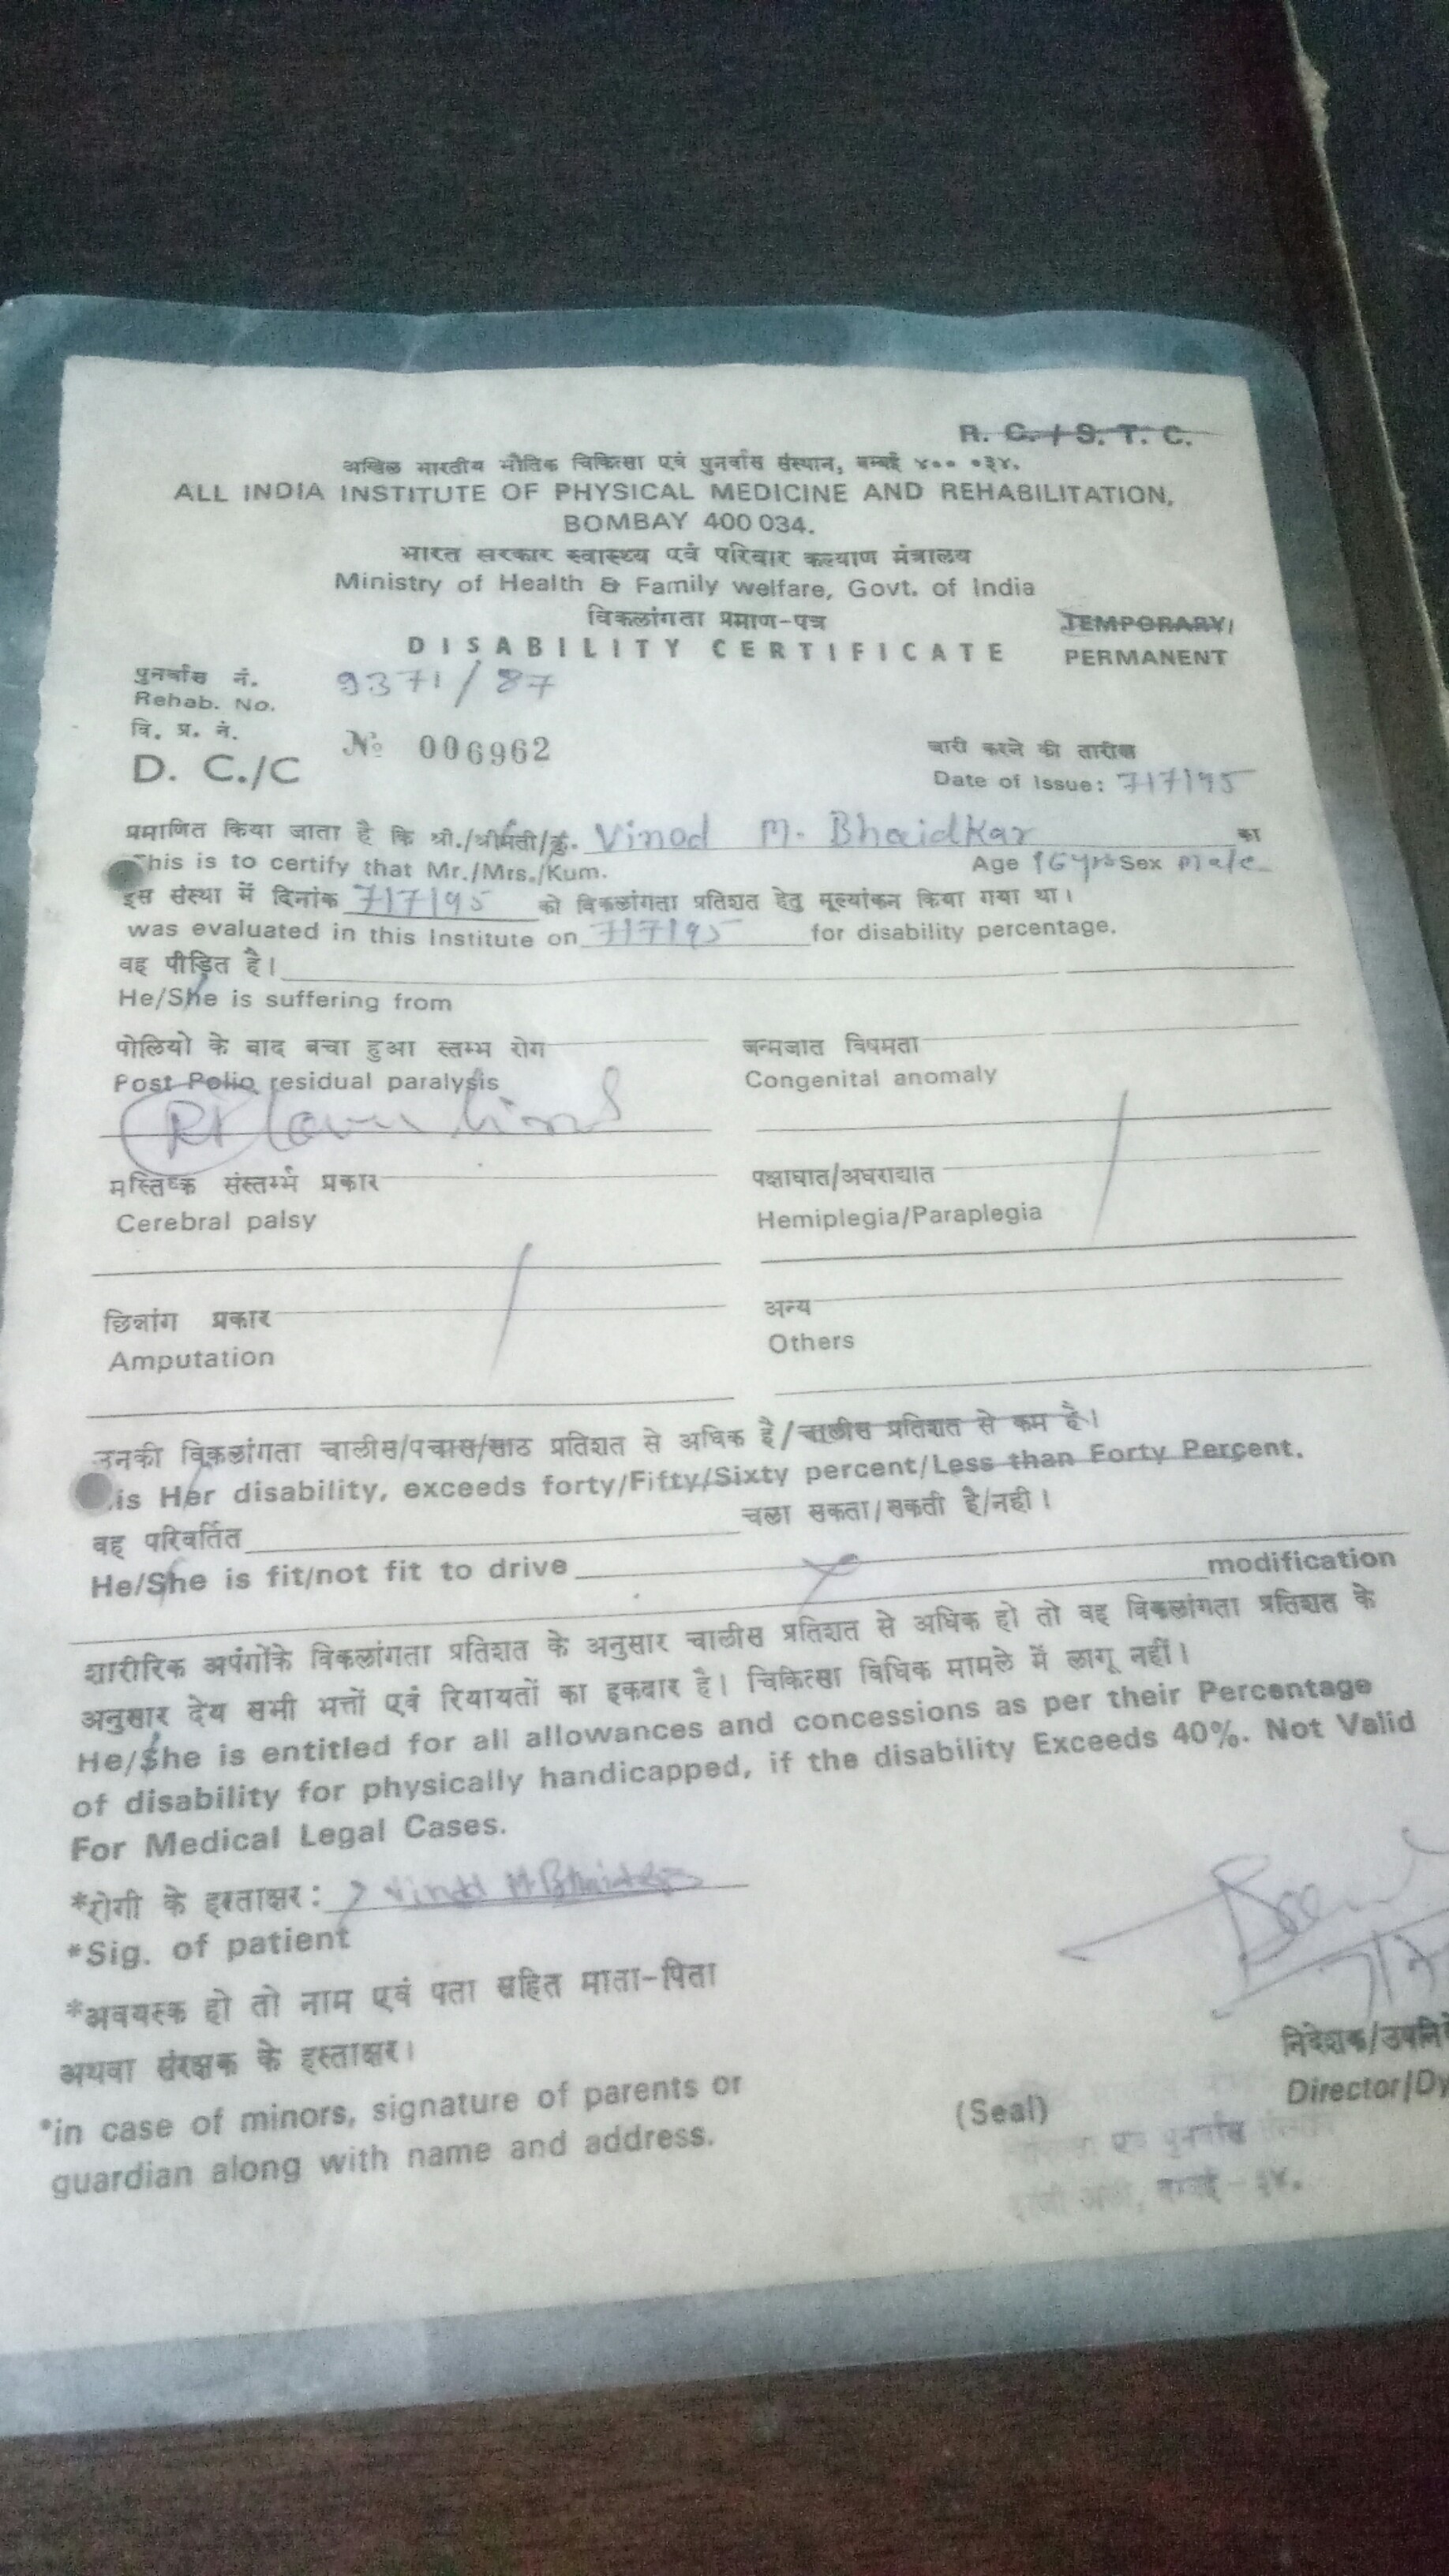 R. C. / S. T. C.
अखिल भारतीय भौतिक चिकित्सा एवं पुनर्वास संस्थान, बम्बई ४०० ०३४.
ALL INDIA INSTITUTE OF PHYSICAL MEDICINE AND REHABILITATION,
BOMBAY 400 034.
भारत सरकार स्वास्थ्य एवं परिवार कल्याण मंत्रालय
Ministry of Health & Family welfare, Govt. of India
विकलांगता प्रमाण-पत्र TEMPORARY/
DISABILITY CERTIFICATE PERMANENT
पुनर्वास नं.
Rehab. No. 9371/87
वि. प्र. नं.
D. C./C № 006962
जारी करने की तारीख
Date of Issue: 7/7/95
प्रमाणित किया जाता है कि श्री./श्रीमती/कु. Vinod M. Bhaidkar का
This is to certify that Mr./Mrs./Kum. Age 16 yrs Sex male
इस संस्था में दिनांक 7/7/95 को विकलांगता प्रतिशत हेतु मूल्यांकन किया गया था।
was evaluated in this Institute on 7/7/95 for disability percentage.
वह पीड़ित है।
He/She is suffering from
पोलियो के बाद बचा हुआ स्तम्भ रोग जन्मजात विषमता
Post Polio residual paralysis Congenital anomaly
मस्तिष्क संस्तम्भ प्रकार पक्षाघात/अधराघात
Cerebral palsy Hemiplegia/Paraplegia
छिन्नांग प्रकार अन्य
Amputation Others
उनकी विकलांगता चालीस/पचास/साठ प्रतिशत से अधिक है/चालीस प्रतिशत से कम है।
is Her disability, exceeds forty/Fifty/Sixty percent/Less than Forty Percent.
वह परिवर्तित चला सकता/सकती है/नही।
He/She is fit/not fit to drive modification
शारीरिक अपंगोंके विकलांगता प्रतिशत के अनुसार चालीस प्रतिशत से अधिक हो तो वह विकलांगता प्रतिशत के
अनुसार देय सभी भत्तों एवं रियायतों का हकदार है। चिकित्सा विधिक मामले में लागू नहीं।
He/She is entitled for all allowances and concessions as per their Percentage
of disability for physically handicapped, if the disability Exceeds 40%. Not Valid
For Medical Legal Cases.
*रोगी के हस्ताक्षर: Vinod M Bhaidkar
*Sig. of patient
*अवयस्क हो तो नाम एवं पता सहित माता-पिता
अथवा संरक्षक के हस्ताक्षर।
*in case of minors, signature of parents or
guardian along with name and address.
(Seal)
निदेशक/उपनि
Director/Dy
एवं पुनर्वास
बम्बई-३४.